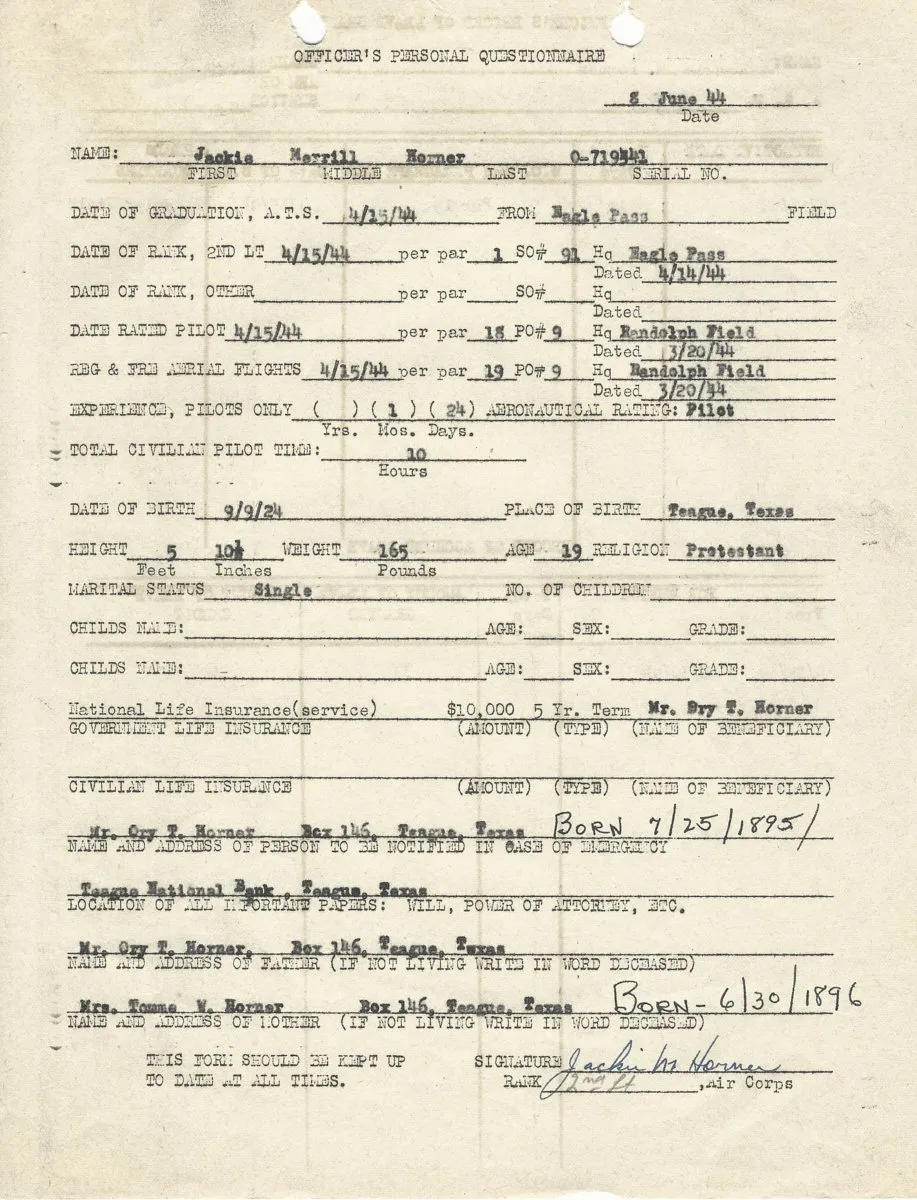 OFFICER'S PERSONAL QUESTIONNAIRE
8 June 44
Date
NAME: Jackie Merrill Horner
FIRST MIDDLE LAST SERIAL NO.
DATE OF GRADUATION, A.T.S. 4/15/44 FROM Eagle Pass FIELD
DATE OF RANK, 2ND LT 4/15/44 per par 1 SO# 91 Hq Eagle Pass
Dated 4/14/44
DATE OF RANK, OTHER per par SO# Hq
Dated
DATE RATED PILOT 4/15/44 per par 18 PO# 9 Hq Randolph Field
Dated 3/20/44
REG & FRE AERIAL FLIGHTS 4/15/44 per par 19 PO# 9 Hq Randolph Field
Dated 3/20/44
EXPERIENCE, PILOTS ONLY ( ) ( 1 ) ( 24) AERONAUTICAL RATING: Pilot
Yrs. Mos. Days.
TOTAL CIVILIAN PILOT TIME: 10
Hours
DATE OF BIRTH 9/9/24 PLACE OF BIRTH Teague, Texas
HEIGHT 5 10½ WEIGHT 165 AGE 19 RELIGION Protestant
Feet Inches Pounds
MARITAL STATUS Single NO. OF CHILDREN
CHILDS NAME: AGE: SEX: GRADE:
CHILDS NAME: AGE: SEX: GRADE:
National Life Insurance(service) $10,000 5 Yr. Term Mr. Ory T. Horner
GOVERNMENT LIFE INSURANCE (AMOUNT) (TYPE) (NAME OF BENEFICIARY)
CIVILIAN LIFE INSURANCE (AMOUNT) (TYPE) (NAME OF BENEFICIARY)
Mr. Ory T. Horner Box 146, Teague, Texas BORN 7/25/1895/
NAME AND ADDRESS OF PERSON TO BE NOTIFIED IN CASE OF EMERGENCY
Teague National Bank , Teague, Texas
LOCATION OF ALL IMPORTANT PAPERS: WILL, POWER OF ATTORNEY, ETC.
Mr. Ory T. Horner, Box 146, Teague, Texas
NAME AND ADDRESS OF FATHER (IF NOT LIVING WRITE IN WORD DECEASED)
Mrs. Tomme W. Horner Box 146, Teague, Texas BORN - 6/30/1896
NAME AND ADDRESS OF MOTHER (IF NOT LIVING WRITE IN WORD DECEASED)
THIS FORM SHOULD BE KEPT UP SIGNATURE Jackie M Horner
TO DATE AT ALL TIMES. RANK 2nd Lt ,Air Corps